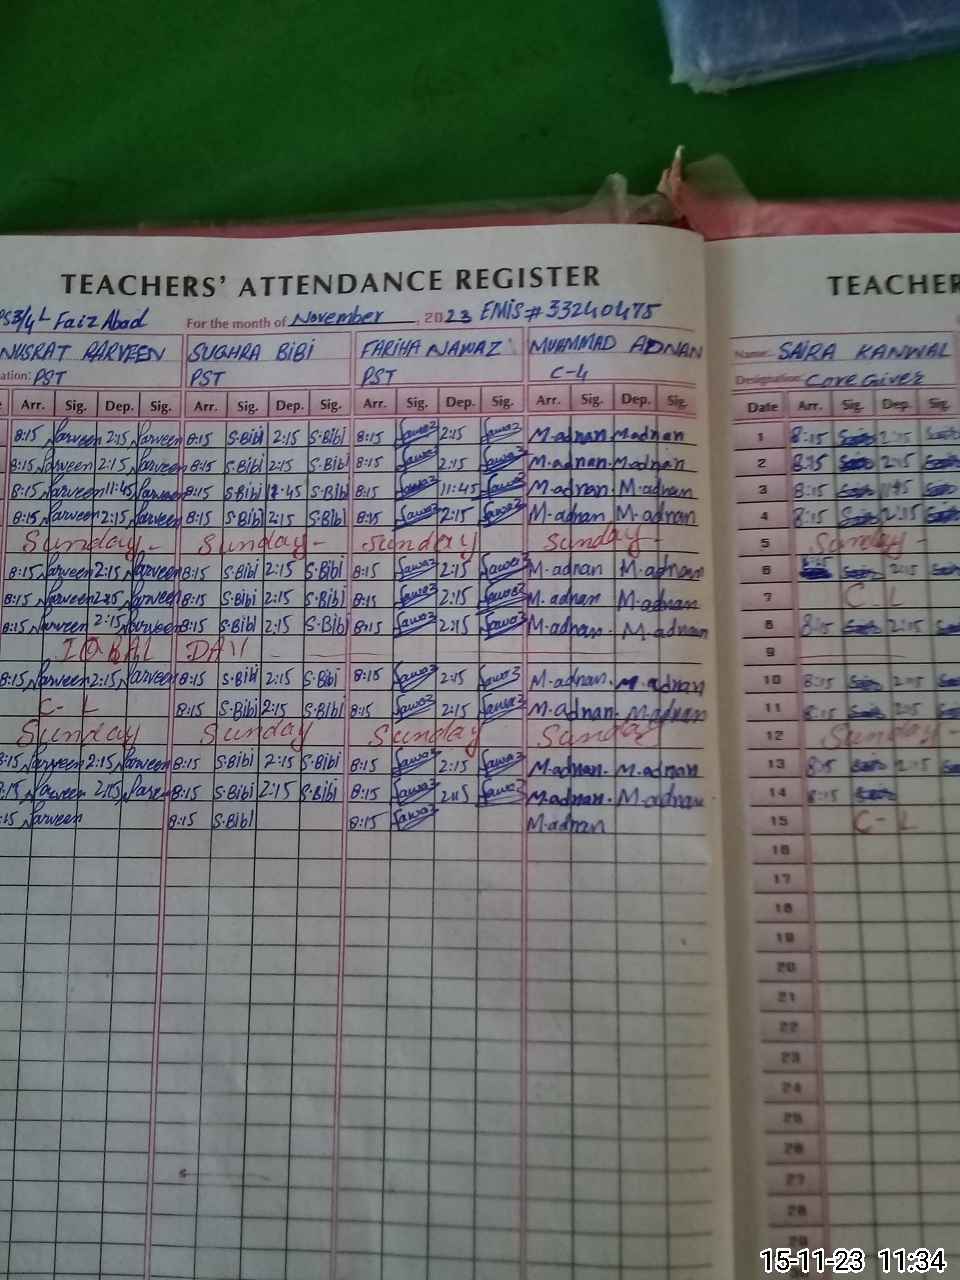 TEACHERS' ATTENDANCE REGISTER
3/4 L Faiz Abad For the month of November, 2023 EMIS # 33240475
NUSRAT PARVEEN SUGHRA BIBI FARIHA NAWAZ MUHMMAD ADNAN
ation: PST PST PST C-4
Arr. Sig. Dep. Sig. Arr. Sig. Dep. Sig. Arr. Sig. Dep. Sig. Arr. Sig. Dep. Sig.
8:15 Parveen 2:15 Parveen 8:15 S.Bibi 2:15 S.Bibi 8:15 2:15 M.adnan M.adnan
8:15 Parveen 2:15 Parveen 8:15 S.Bibi 2:15 S.Bibi 8:15 2:15 M.adnan. M.adnan
8:15 Parveen 11:45 Parveen 8:15 S.Bibi 11:45 S.Bibi 8:15 11:45 M.adnan. M.adnan
8:15 Parveen 2:15 Parveen 8:15 S.Bibi 2:15 S.Bibi 8:15 2:15 M.adnan M.adnan
Sunday - Sunday - Sunday Sunday -
8:15 Parveen 2:15 Parveen 8:15 S.Bibi 2:15 S.Bibi 8:15 2:15 M.adnan M.adnan
8:15 Parveen 2:15 Parveen 8:15 S.Bibi 2:15 S.Bibi 8:15 2:15 M.adnan M.adnan
8:15 Parveen 2:15 Parveen 8:15 S.Bibi 2:15 S.Bibi 8:15 2:15 M.adnan. M.adnan
IQBAL DAY
8:15 Parveen 2:15 Parveen 8:15 S.Bibi 2:15 S.Bibi 8:15 2:15 M.adnan. M.adnan
C- L 8:15 S.Bibi 2:15 S.Bibi 8:15 2:15 M.adnan. M.adnan
Sunday Sunday Sunday Sunday
8:15 Parveen 2:15 Parveen 8:15 S.Bibi 2:15 S.Bibi 8:15 2:15 M.adnan. M.adnan
8:15 Parveen 2:15 8:15 S.Bibi 2:15 S.Bibi 8:15 2:15 M.adnan. M.adnan.
:15 Parveen 8:15 S.Bibi 8:15 M.adnan
TEACHER
Name: SAIRA KANWAL
Designation: Core Giver
Date Arr. Sig. Dep. Sig.
1 8:15 2:15
2 8:15 2:15
3 8:15 11:45
4 8:15 2:15
5 Sunday -
6 2:15
7 C-L
8 8:15 2:15
9
10 8:15 2:15
11 8:15 2:15
12 Sunday -
13 8:15 2:15
14 8:15
15 C-L
16
17
18
19
20
21
22
23
24
25
26
27
28
29
15-11-23 11:34